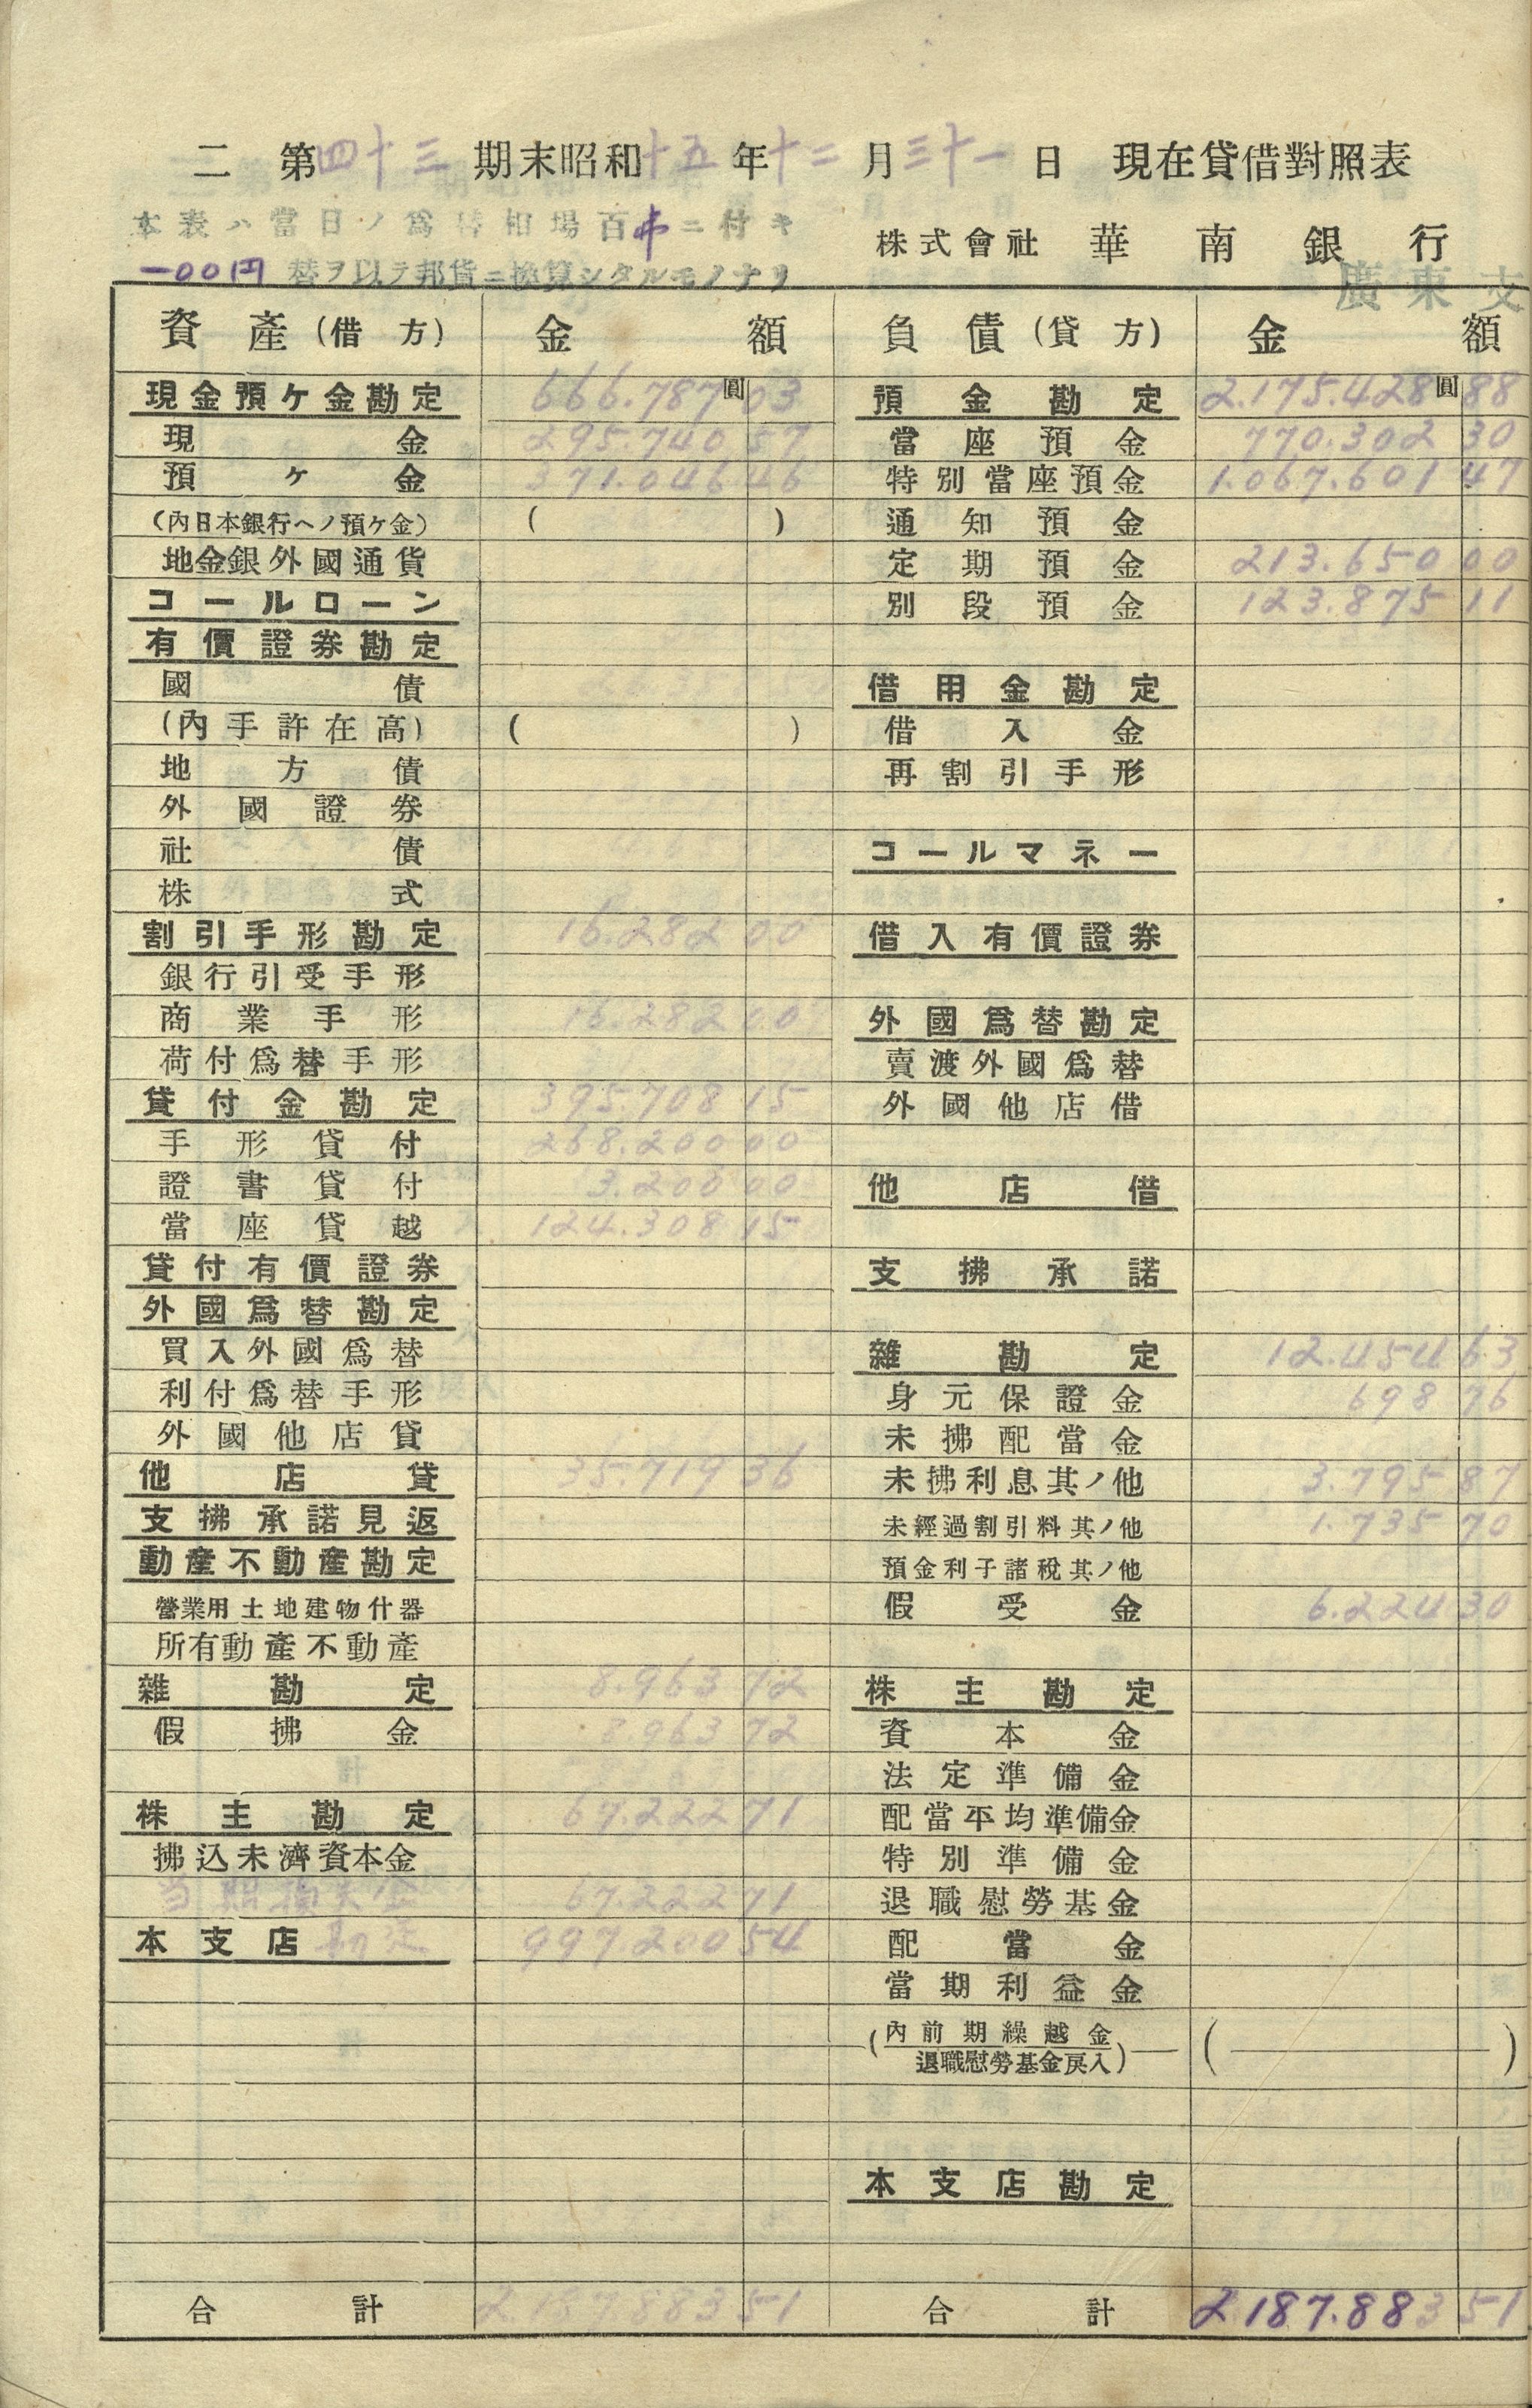 二 第四十三期末昭和十五年十二月三十一日 現在貸借對照表
本表ハ當日ノ爲替相場百弗ニ付キ
一00円替ヲ以テ邦貨ニ換算シタルモノナリ
株式會社 華南銀行
廣東支
資產(借方) 金額 負債(貸方) 金額
現金預ケ金勘定 666.787圓03 預金勘定 2.175.428圓88
現金 295.740 57 當座預金 770.302 30
預ケ金 371.046 46 特別當座預金 1.067.601 47
(內日本銀行ヘノ預ケ金) ( ) 通知預金
地金銀外國通貨 定期預金 213.650 00
コールローン 別段預金 123.875 11
有價證券勘定
國債 借用金勘定
(內手許在高) ( ) 借入金
地方債 再割引手形
外國證券
社債 コールマネー
株式
割引手形勘定 16.282 00 借入有價證券
銀行引受手形
商業手形 16.282 00 外國爲替勘定
荷付爲替手形 賣渡外國爲替
貸付金勘定 395.708 15 外國他店借
手形貸付 268.200 00
證書貸付 3.200 00 他店借
當座貸越 124.308 15
貸付有價證券 支拂承諾
外國爲替勘定
買入外國爲替 雜勘定 12.454 63
利付爲替手形 身元保證金 698 76
外國他店貸 未拂配當金
他店貸 35.719 36 未拂利息其ノ他 3.795 87
支拂承諾見返 未經過割引料其ノ他 1.735 70
動產不動產勘定 預金利子諸稅其ノ他
營業用土地建物什器 假受金 6.224 30
所有動產不動產
雜勘定 8.963 72 株主勘定
假拂金 8.963 72 資本金
法定準備金
株主勘定 67.222 71 配當平均準備金
拂込未濟資本金 特別準備金
当期損失金 67.222 71 退職慰勞基金
本支店勘定 997.200 54 配當金
當期利益金
(內前期繰越金 ( )
退職慰勞基金戾入)
本支店勘定
合計 2.187.883 51 合計 2.187.883 51